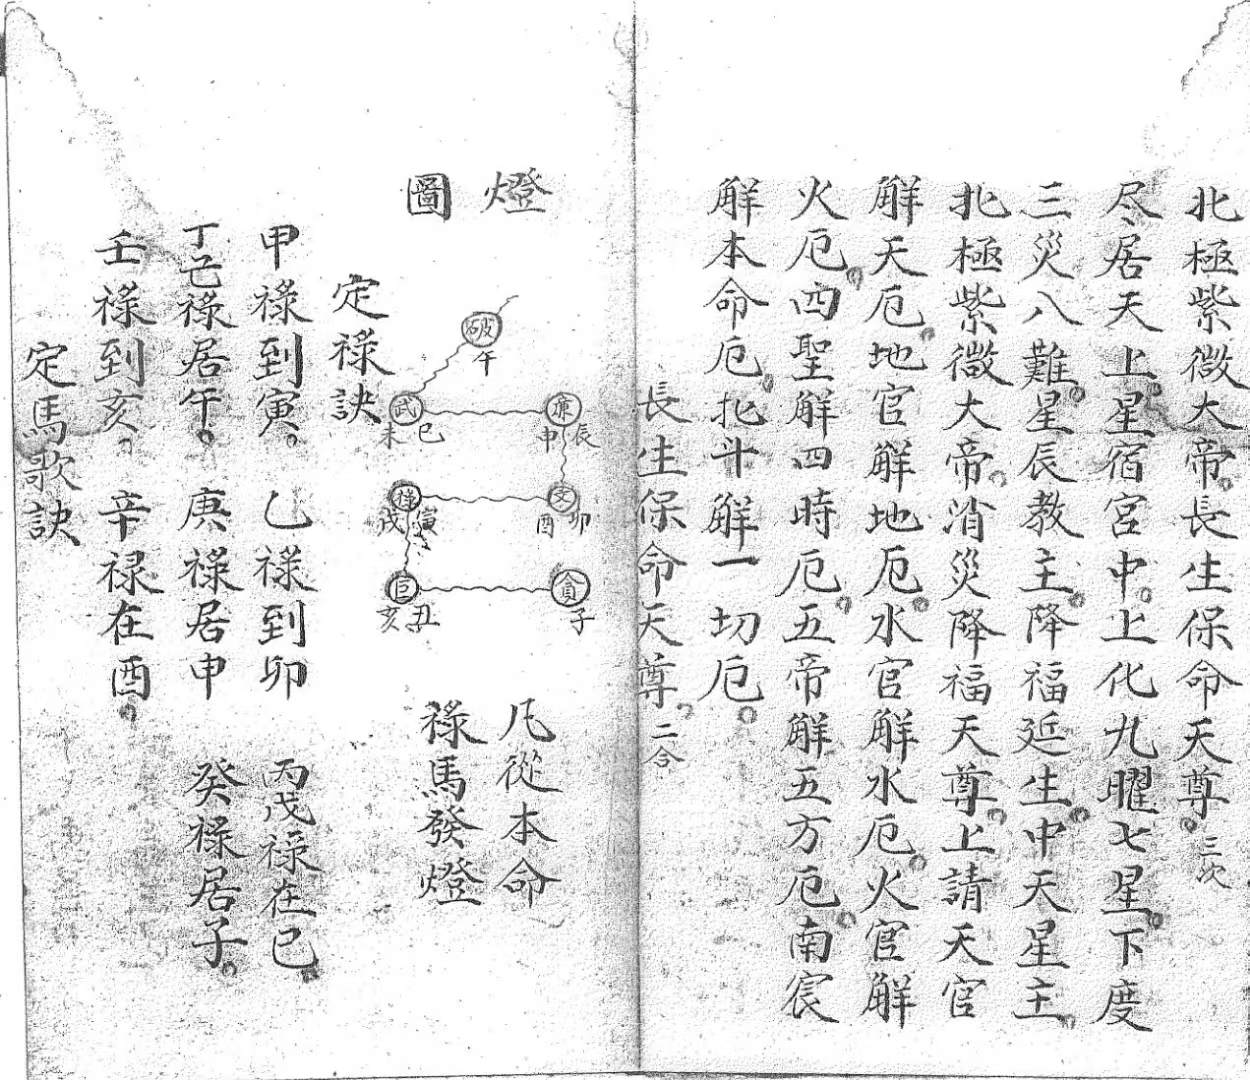 北極紫微大帝長生保命天尊三次
尽居天上星宿宮中上化九曜七星下度
三災八難星辰教主降福延生中天星主
北極紫微大帝消災降福天尊上請天官
解天厄地官解地厄水官解水厄火官解
火厄四聖解四時厄五帝解五方厄南宸
解本命厄北斗解一切厄
長生保命天尊二合
燈圖
破
午
武
未巳
廉
申辰
祿
戌寅
文
酉卯
巨
亥丑
貪
子
凡從本命
祿馬發燈
定祿訣
甲祿到寅 乙祿到卯 丙戊祿在巳
丁己祿居午 庚祿居申 癸祿居子
壬祿到亥 辛禄在酉
定馬歌訣